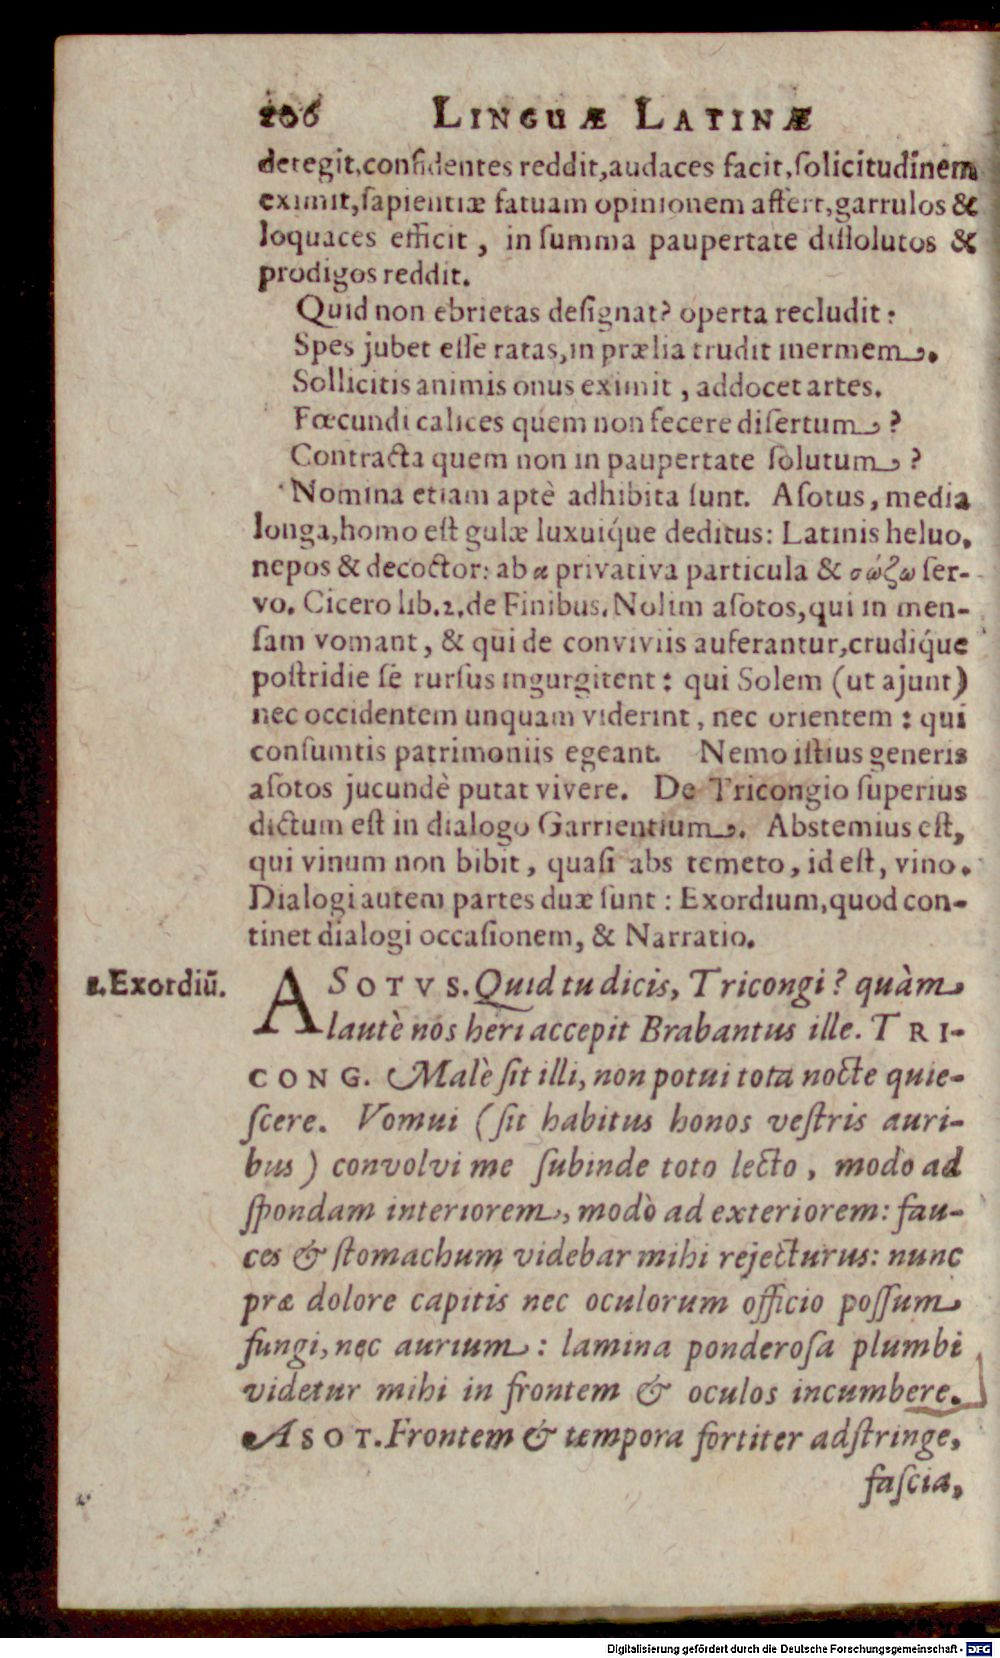 206 LINGUÆ LATINÆ
detegit, confidentes reddit, audaces facit, ſolicitudinem
eximit, ſapientiæ fatuam opinionem affert, garrulos &
loquaces efficit, in ſumma paupertate diſſolutos &
prodigos reddit.
Quid non ebrietas deſignat? operta recludit:
Spes jubet eſſe ratas, in prælia trudit inermem.
Sollicitis animis onus eximit, addocet artes.
Fœcundi calices quem non fecere diſertum?
Contracta quem non in paupertate ſolutum?
Nomina etiam aptè adhibita ſunt. Aſotus, media
longa, homo eſt gulæ luxuiq́ue deditus: Latinis heluo,
nepos & decoctor: ab α privativa particula & σώζω ſer-
vo. Cicero lib. 2. de Finibus. Nolim aſotos, qui in men-
ſam vomant, & qui de conviviis auferantur, crudiq́ue
poſtridie ſe rurſus ingurgitent: qui Solem (ut ajunt)
nec occidentem unquam viderint, nec orientem: qui
conſumtis patrimoniis egeant. Nemo iſtius generis
aſotos jucundè putat vivere. De Tricongio ſuperius
dictum eſt in dialogo Garrientium. Abſtemius eſt,
qui vinum non bibit, quaſi abs temeto, id eſt, vino.
Dialogi autem partes duæ ſunt: Exordium, quod con-
tinet dialogi occaſionem, & Narratio.
1. Exordiū. ASOTVS. Quid tu dicis, Tricongi? quàm
lautè nos heri accepit Brabantus ille. TRI-
CONG. Malè ſit illi, non potui tota nocte quie-
ſcere. Vomui (ſit habitus honos veſtris auri-
bus) convolvi me ſubinde toto lecto, modò ad
ſpondam interiorem, modò ad exteriorem: fau-
ces & ſtomachum videbar mihi rejecturus: nunc
præ dolore capitis nec oculorum officio poſſum
fungi, nec aurium: lamina ponderoſa plumbi
videtur mihi in frontem & oculos incumbere.
ASOT. Frontem & tempora fortiter adſtringe,
faſcia,
Digitalisierung gefördert durch die Deutsche Forschungsgemeinschaft - DFG